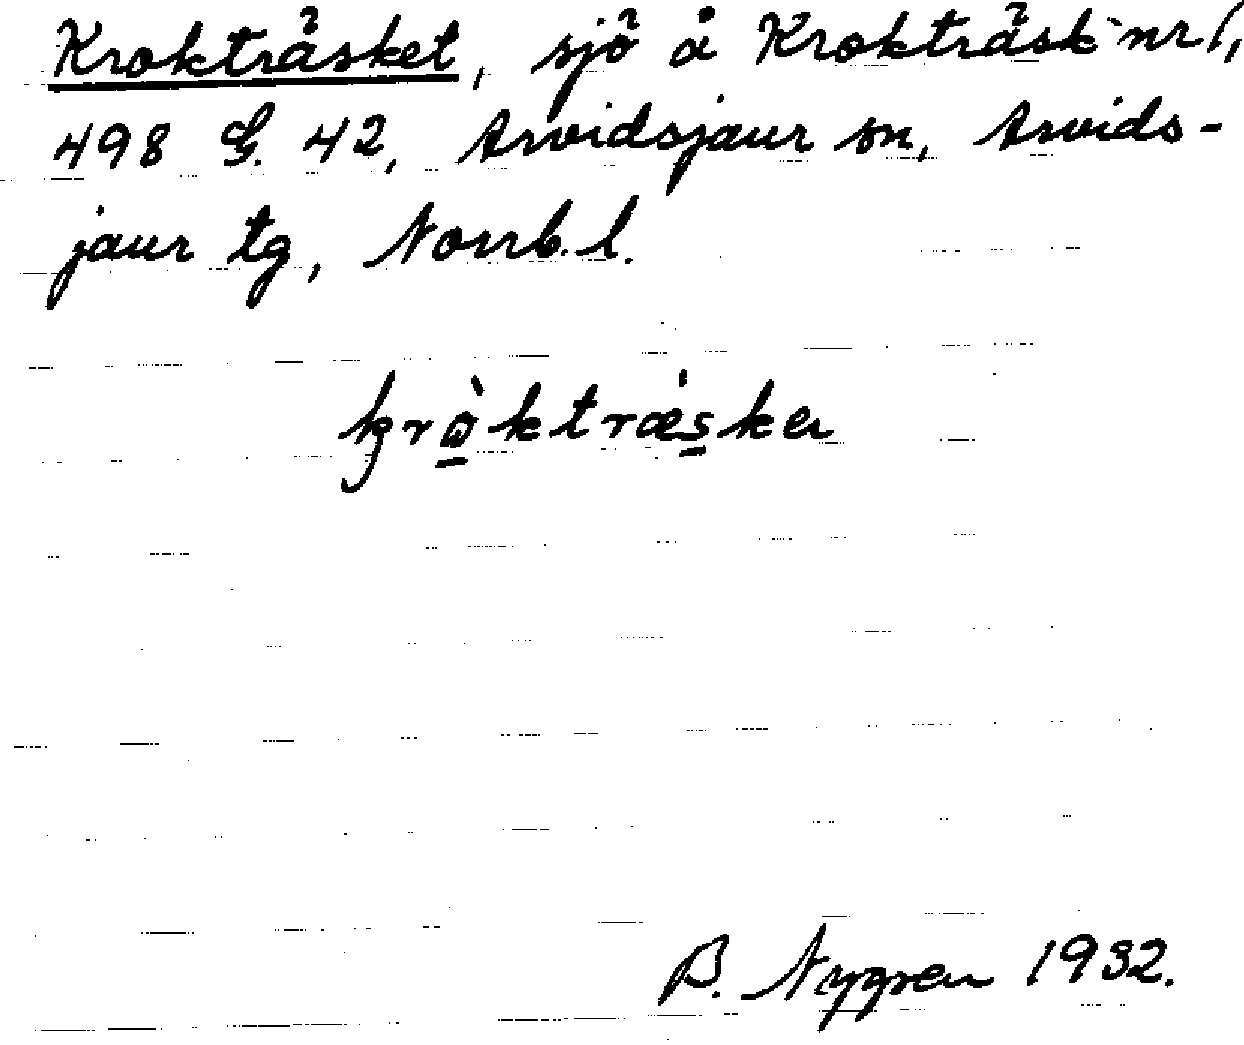 Krokträsket, sjö å Krokträsk nr 1,
498 G. 42, Arvidsjaur sn, Arvids-
jaur tg, Norrb. l.
krò̱ktræ̀s̱ka
B. Nygren 1932.